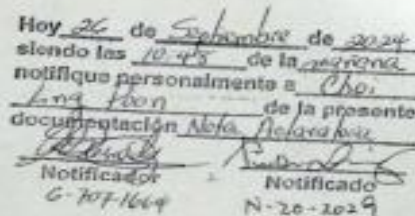 Hoy 26 de Septiembre de 2024
siendo las 10:45 de la mañana
notifique personalmente a Choi
Ling Foon de la presente
documentación Nota Aclaratoria
Notificador Notificado
6-707-1664 N-20-2029